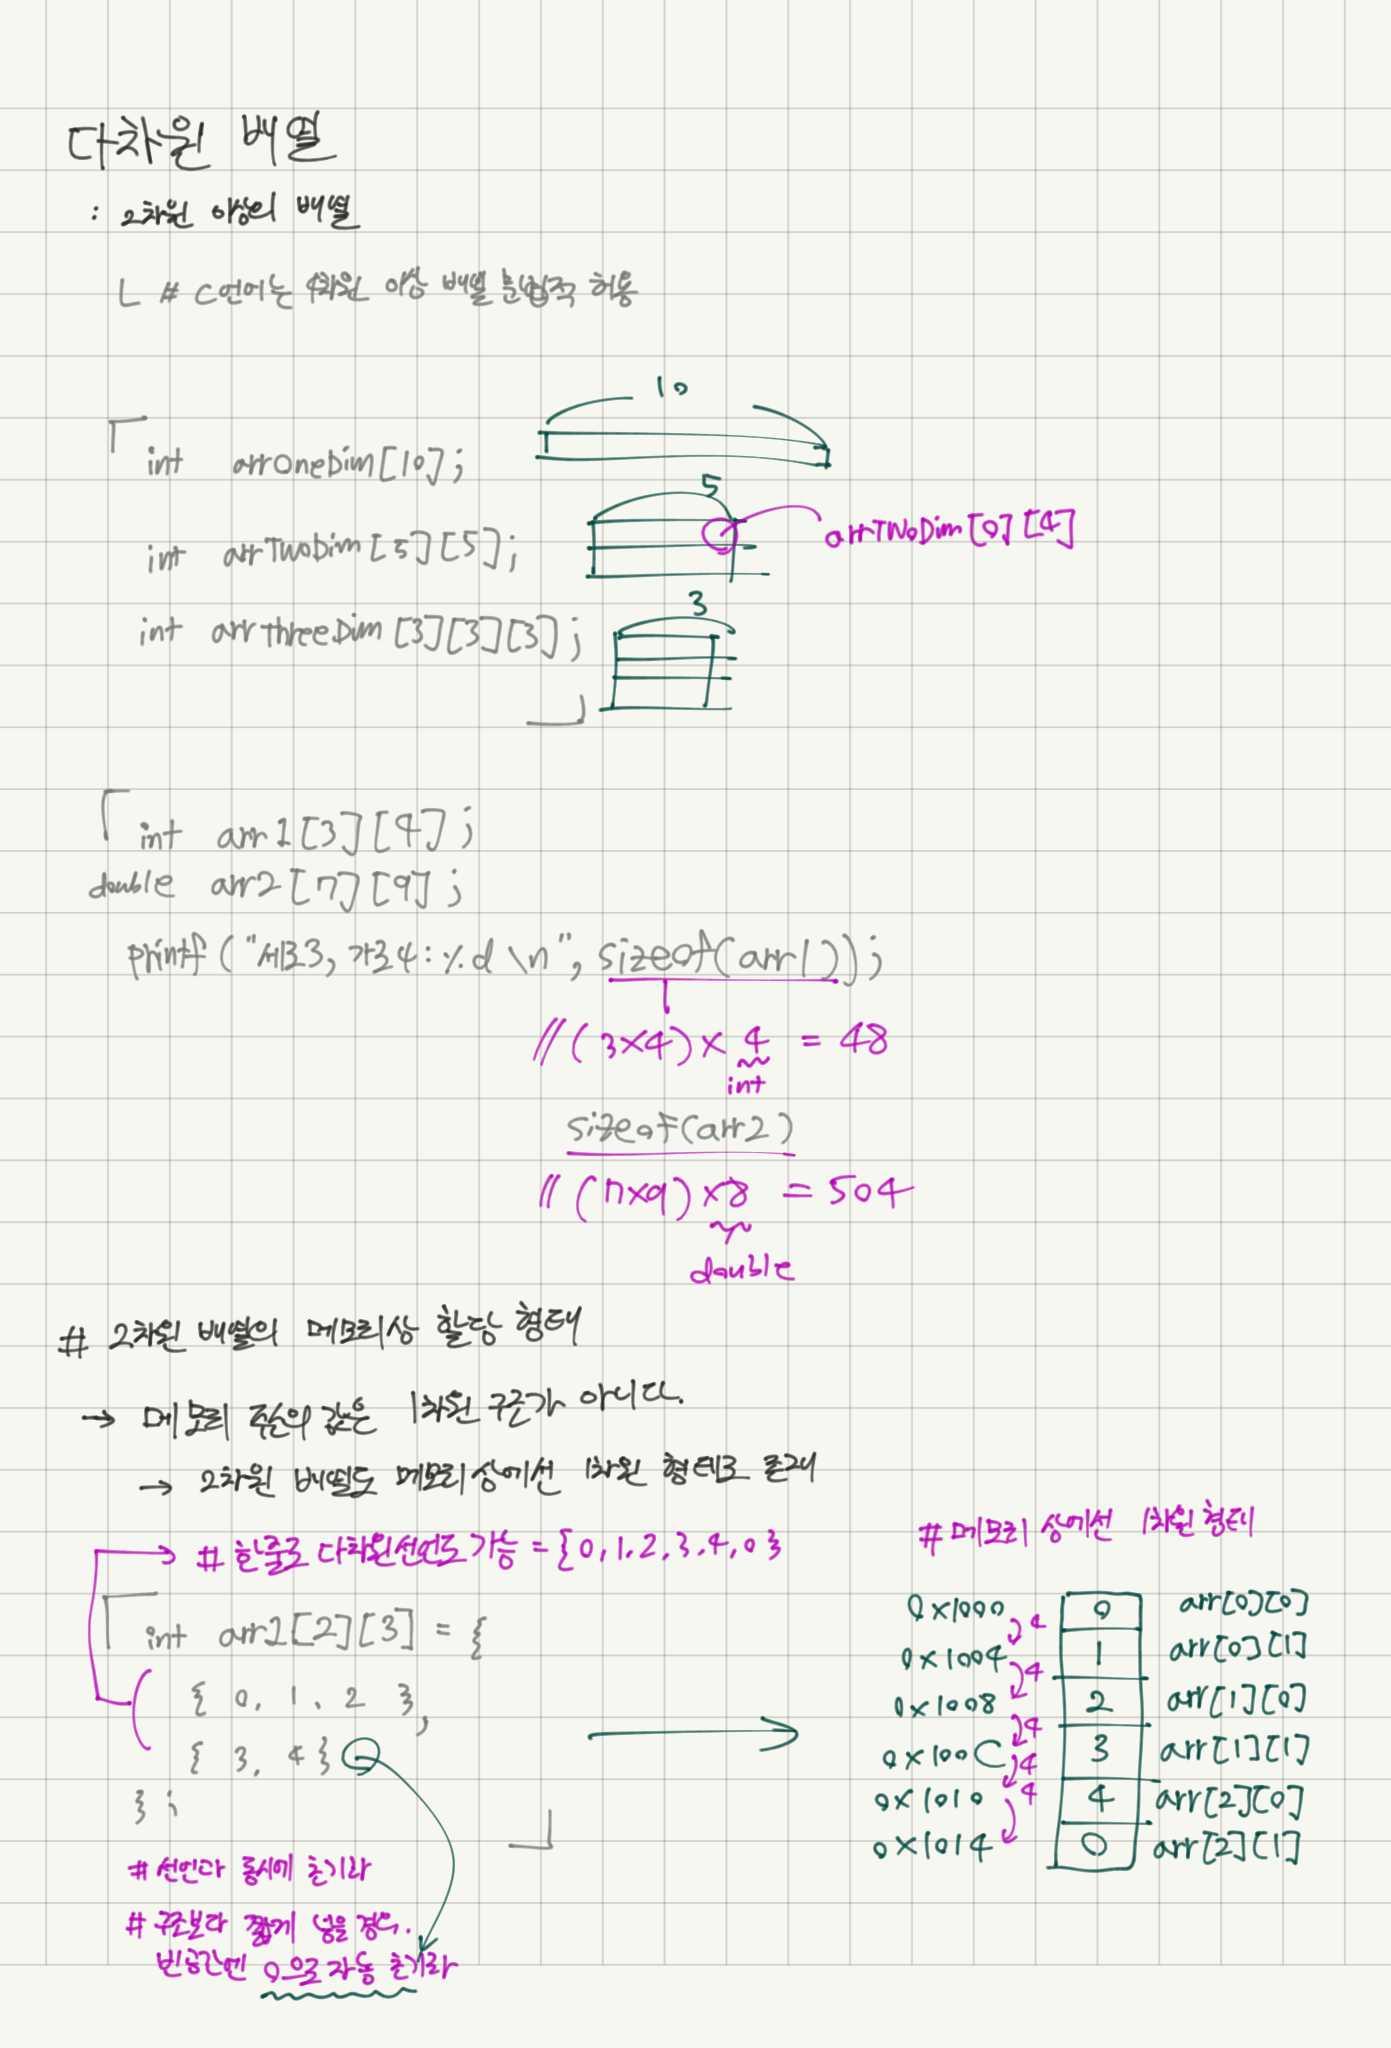 다차원 배열
: 2차원 이상의 배열
ㄴ # C언어는 4차원 이상 배열 문법적 허용
10
int arrOneDim[10];
5
int arrTwoDim[5][5];
arrTwoDim[0][4]
3
int arrthreeDim[3][3][3];
int arr1[3][4];
double arr2[7][9];
printf("세로3, 가로4:%d\n", sizeof(arr1));
//(3×4)×4 = 48
int
sizeof(arr2)
//(7×9)×8 = 504
double
# 2차원 배열의 메모리상 할당 형태
→ 메모리 주소의 값은 1차원 구조가 아니다.
→ 2차원 배열도 메모리상에선 1차원 형태로 존재
# 한줄로 다차원선언도 가능 = {0,1,2,3,4,0}
int arr1[2][3] = {
{ 0, 1, 2 },
{ 3, 4 }
};
# 선언과 동시에 초기화
# 구조보다 짧게 넣을 경우.
빈공간엔 0으로 자동 초기화
# 메모리 상에선 1차원 형태
0x1000 0 arr[0][0]
4
0x1004 1 arr[0][1]
4
0x1008 2 arr[1][0]
4
0x100C 3 arr[1][1]
4
0x1010 4 arr[2][0]
4
0x1014 0 arr[2][1]